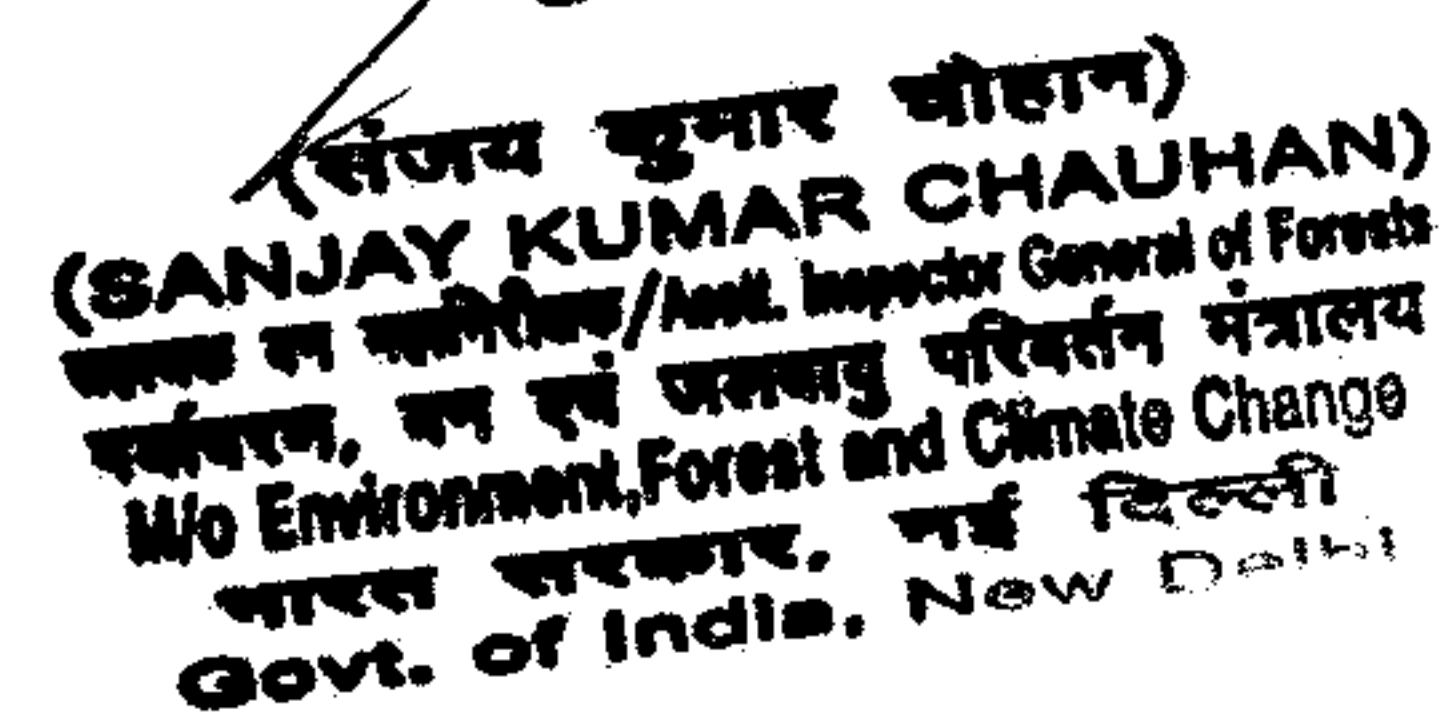 (संजय कुमार चौहान)
(SANJAY KUMAR CHAUHAN)
सहायक वन महानिरीक्षक/Asstt. Inspector General of Forests
पर्यावरण, वन एवं जलवायु परिवर्तन मंत्रालय
M/o Environment,Forest and Climate Change
भारत सरकार, नई दिल्ली
Govt. of India, New Delhi